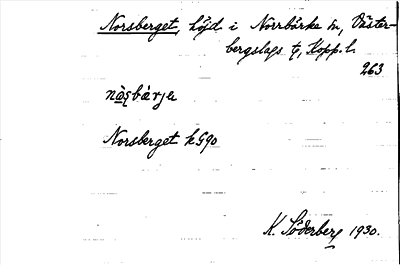 Norsberget, höjd i Norrbärke sn, Väster-
bergslags tg, Kopp. l.
263
Norsberget kG90
K. Söderberg 1930.